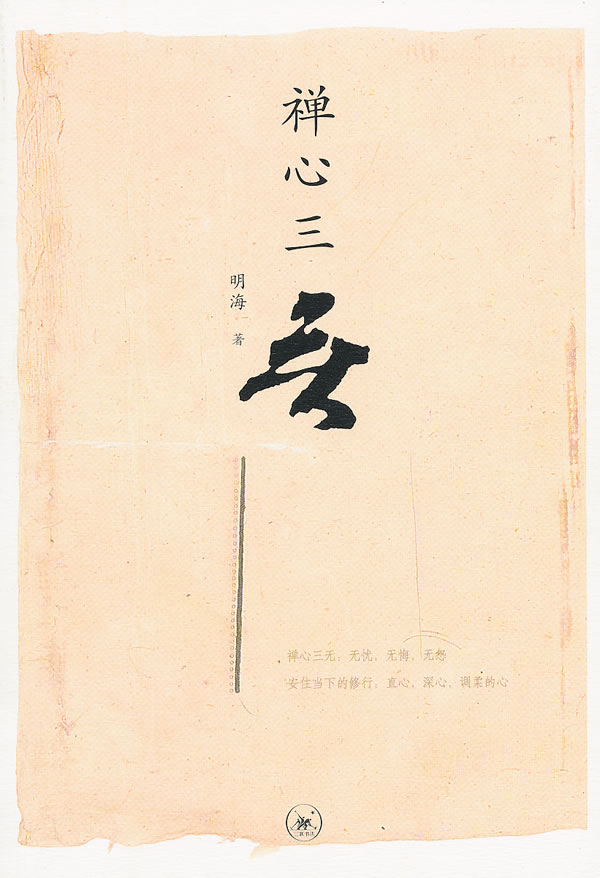 禅心三无
明海 著
禅心三无：无忧，无悔，无怨
安住当下的修行：直心、深心、调柔的心
三联书店